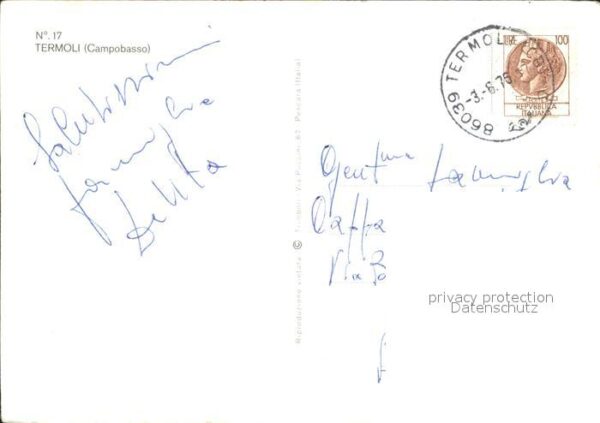 N°. 17
TERMOLI (Campobasso)
Salutissimi
famiglia
Riproduzione vietata © Trimboli, Via Puccini, 82 Pescara (Italia)
86039 TERMOLI (CB)
-3.-6.76
LIRE 100
REPVBBLICA
ITALIANA
Gent.ma famiglia
privacy protection
Datenschutz